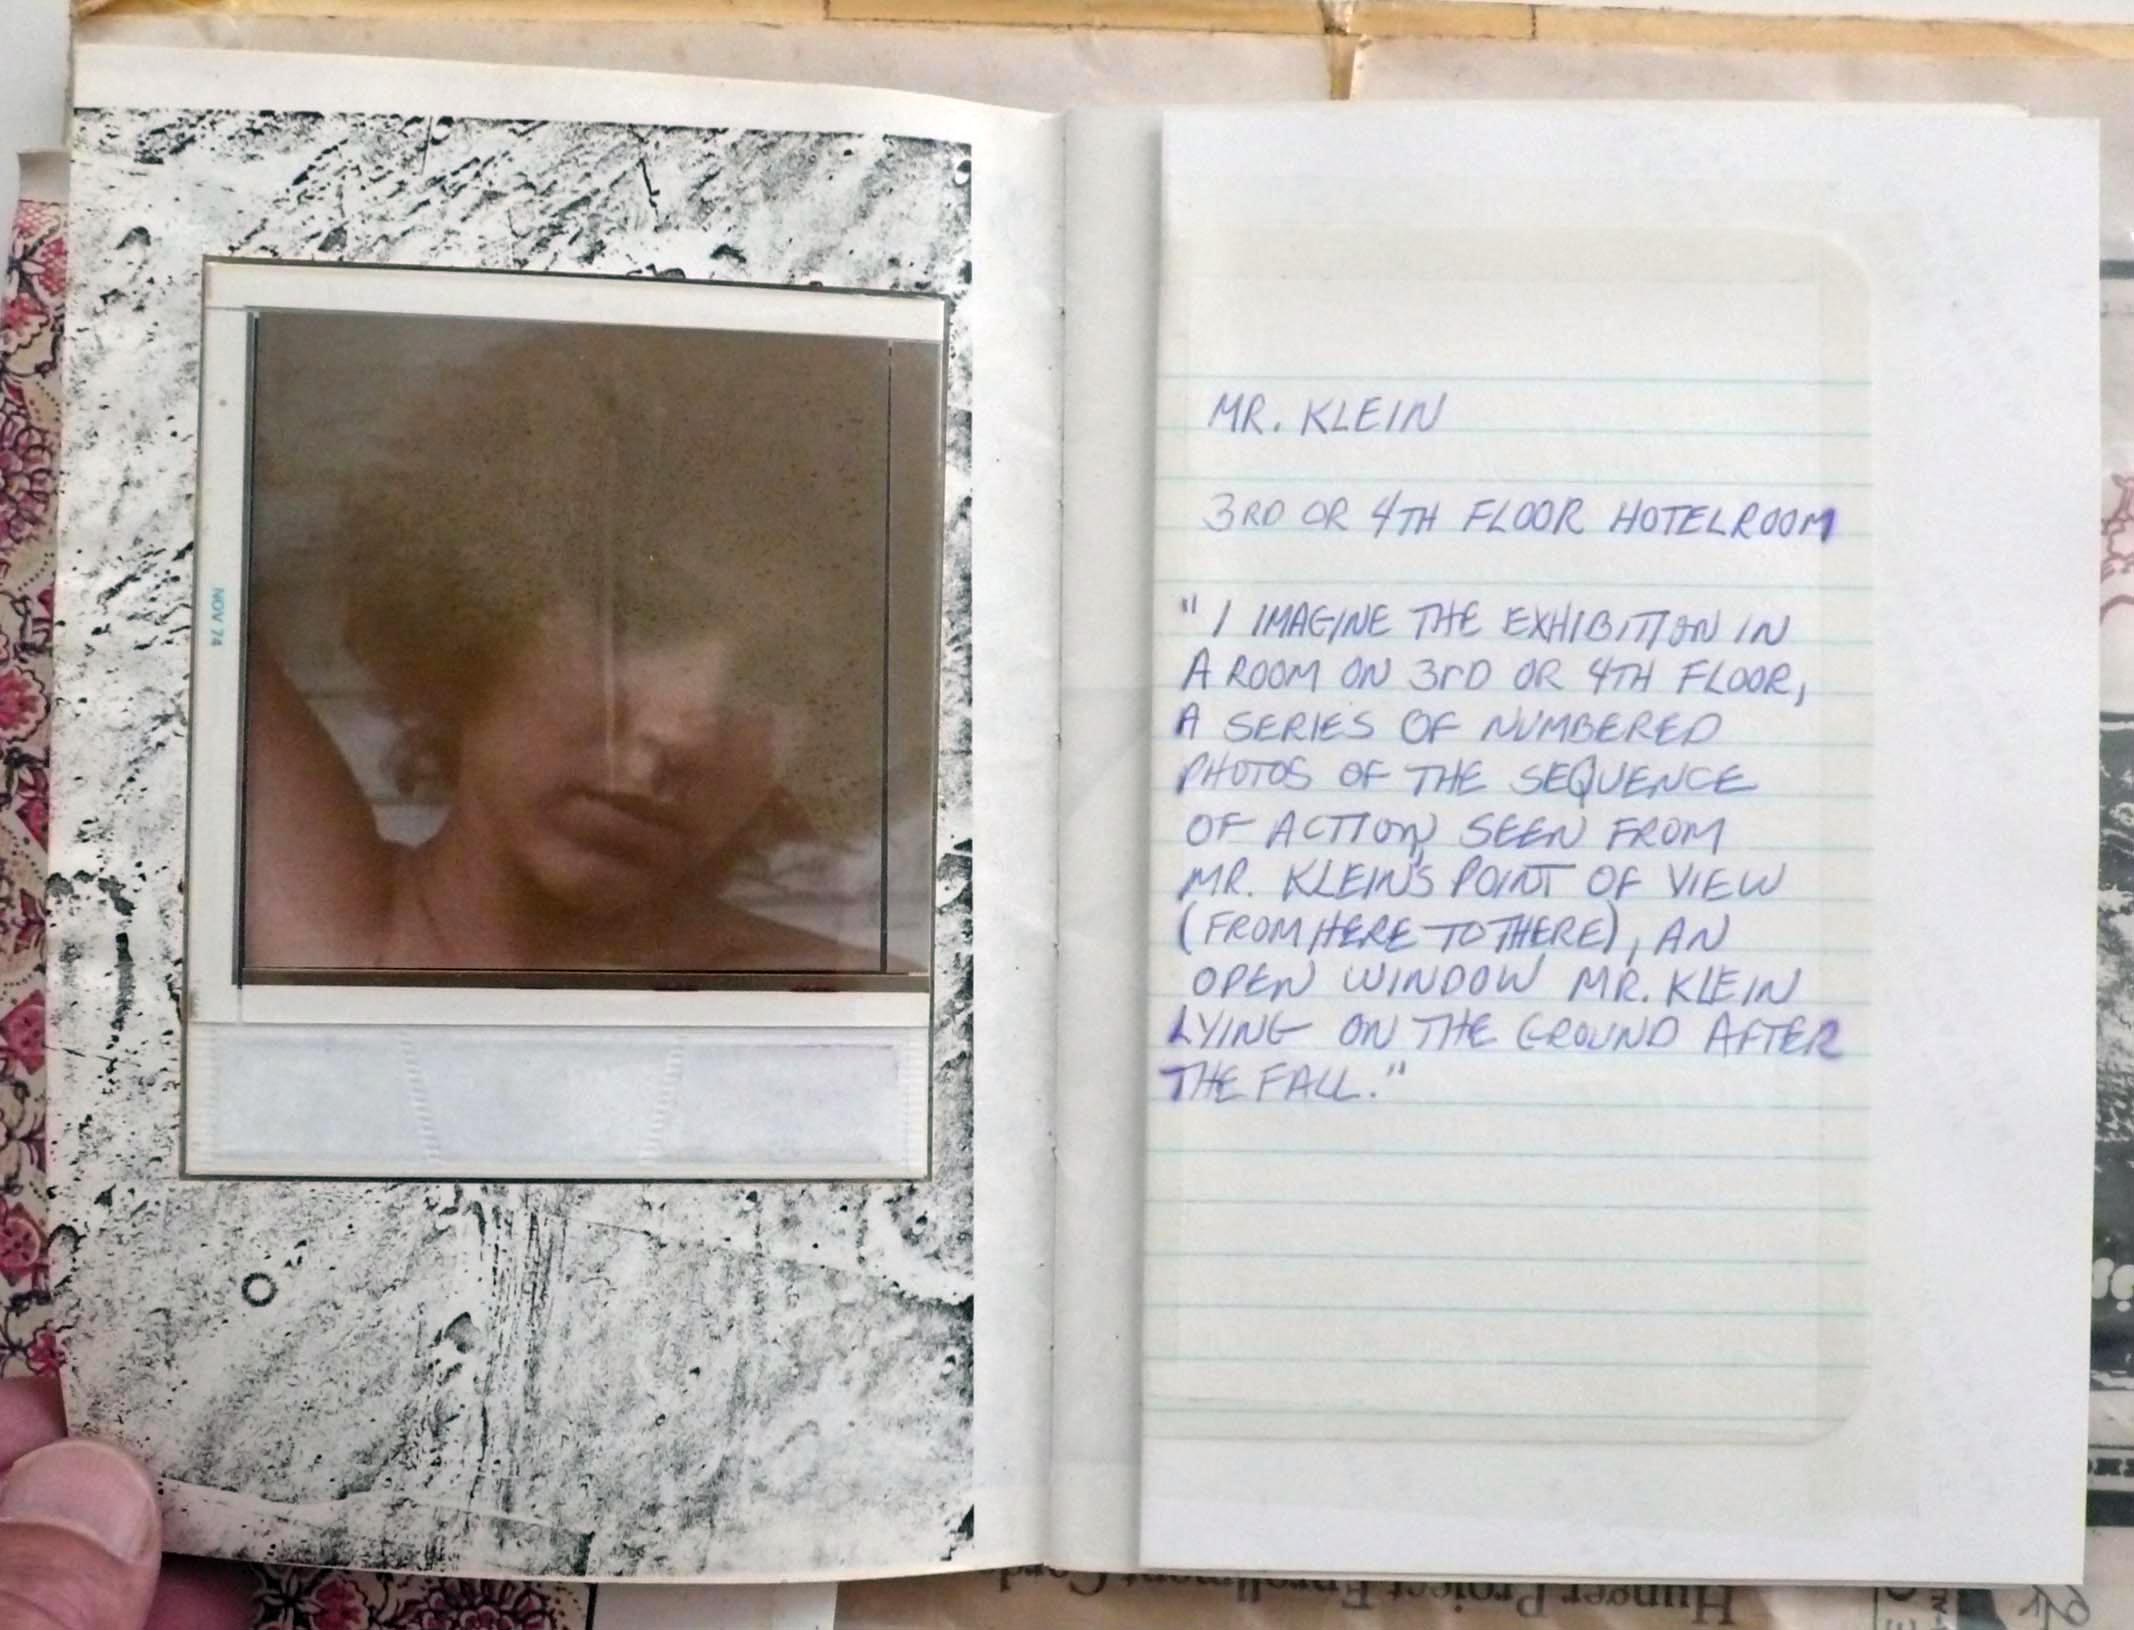 NOV 74
MR. KLEIN
3RD OR 4TH FLOOR HOTELROOM
" I IMAGINE THE EXHIBITION IN
A ROOM ON 3RD OR 4TH FLOOR,
A SERIES OF NUMBERED
PHOTOS OF THE SEQUENCE
OF ACTION, SEEN FROM
MR. KLEIN'S POINT OF VIEW
(FROM HERE TO THERE), AN
OPEN WINDOW MR. KLEIN
LYING ON THE GROUND AFTER
THE FALL."
Hunger Project Enrollment Card